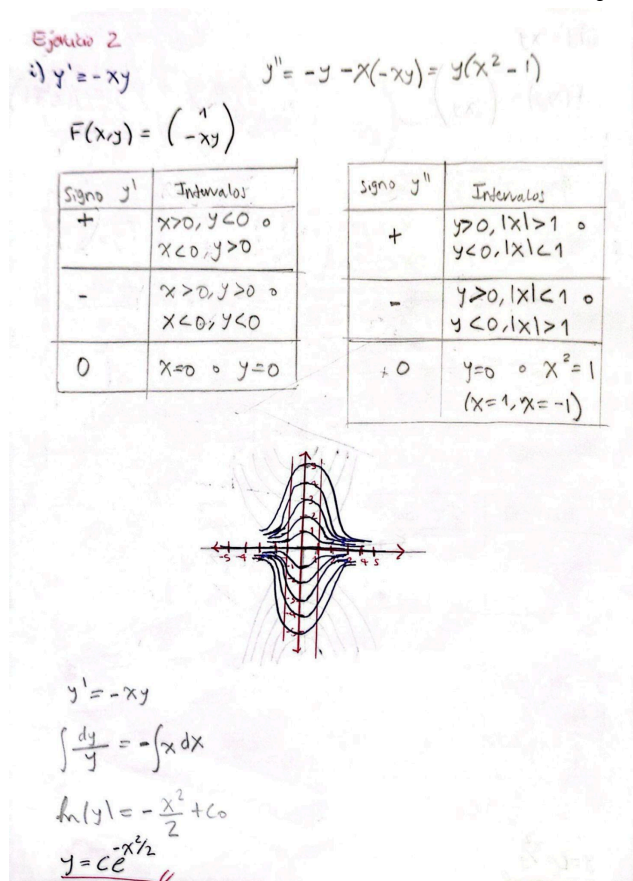 Ejercicio 2
i) y' = -xy
y'' = -y - x(-xy) = y(x² - 1)
F(x,y) = (1
-xy)
Signo y' Intervalos
+ x>0, y<0 o
x<0, y>0
- x>0, y>0 o
x<0, y<0
0 x=0 o y=0
Signo y'' Intervalos
+ y>0, |x|>1 o
y<0, |x|<1
- y>0, |x|<1 o
y<0, |x|>1
0 y=0 o x²=1
(x=1, x=-1)
y' = -xy
∫ dy/y = -∫x dx
ln|y| = -x²/2 + c₀
y = ce^(-x²/2)